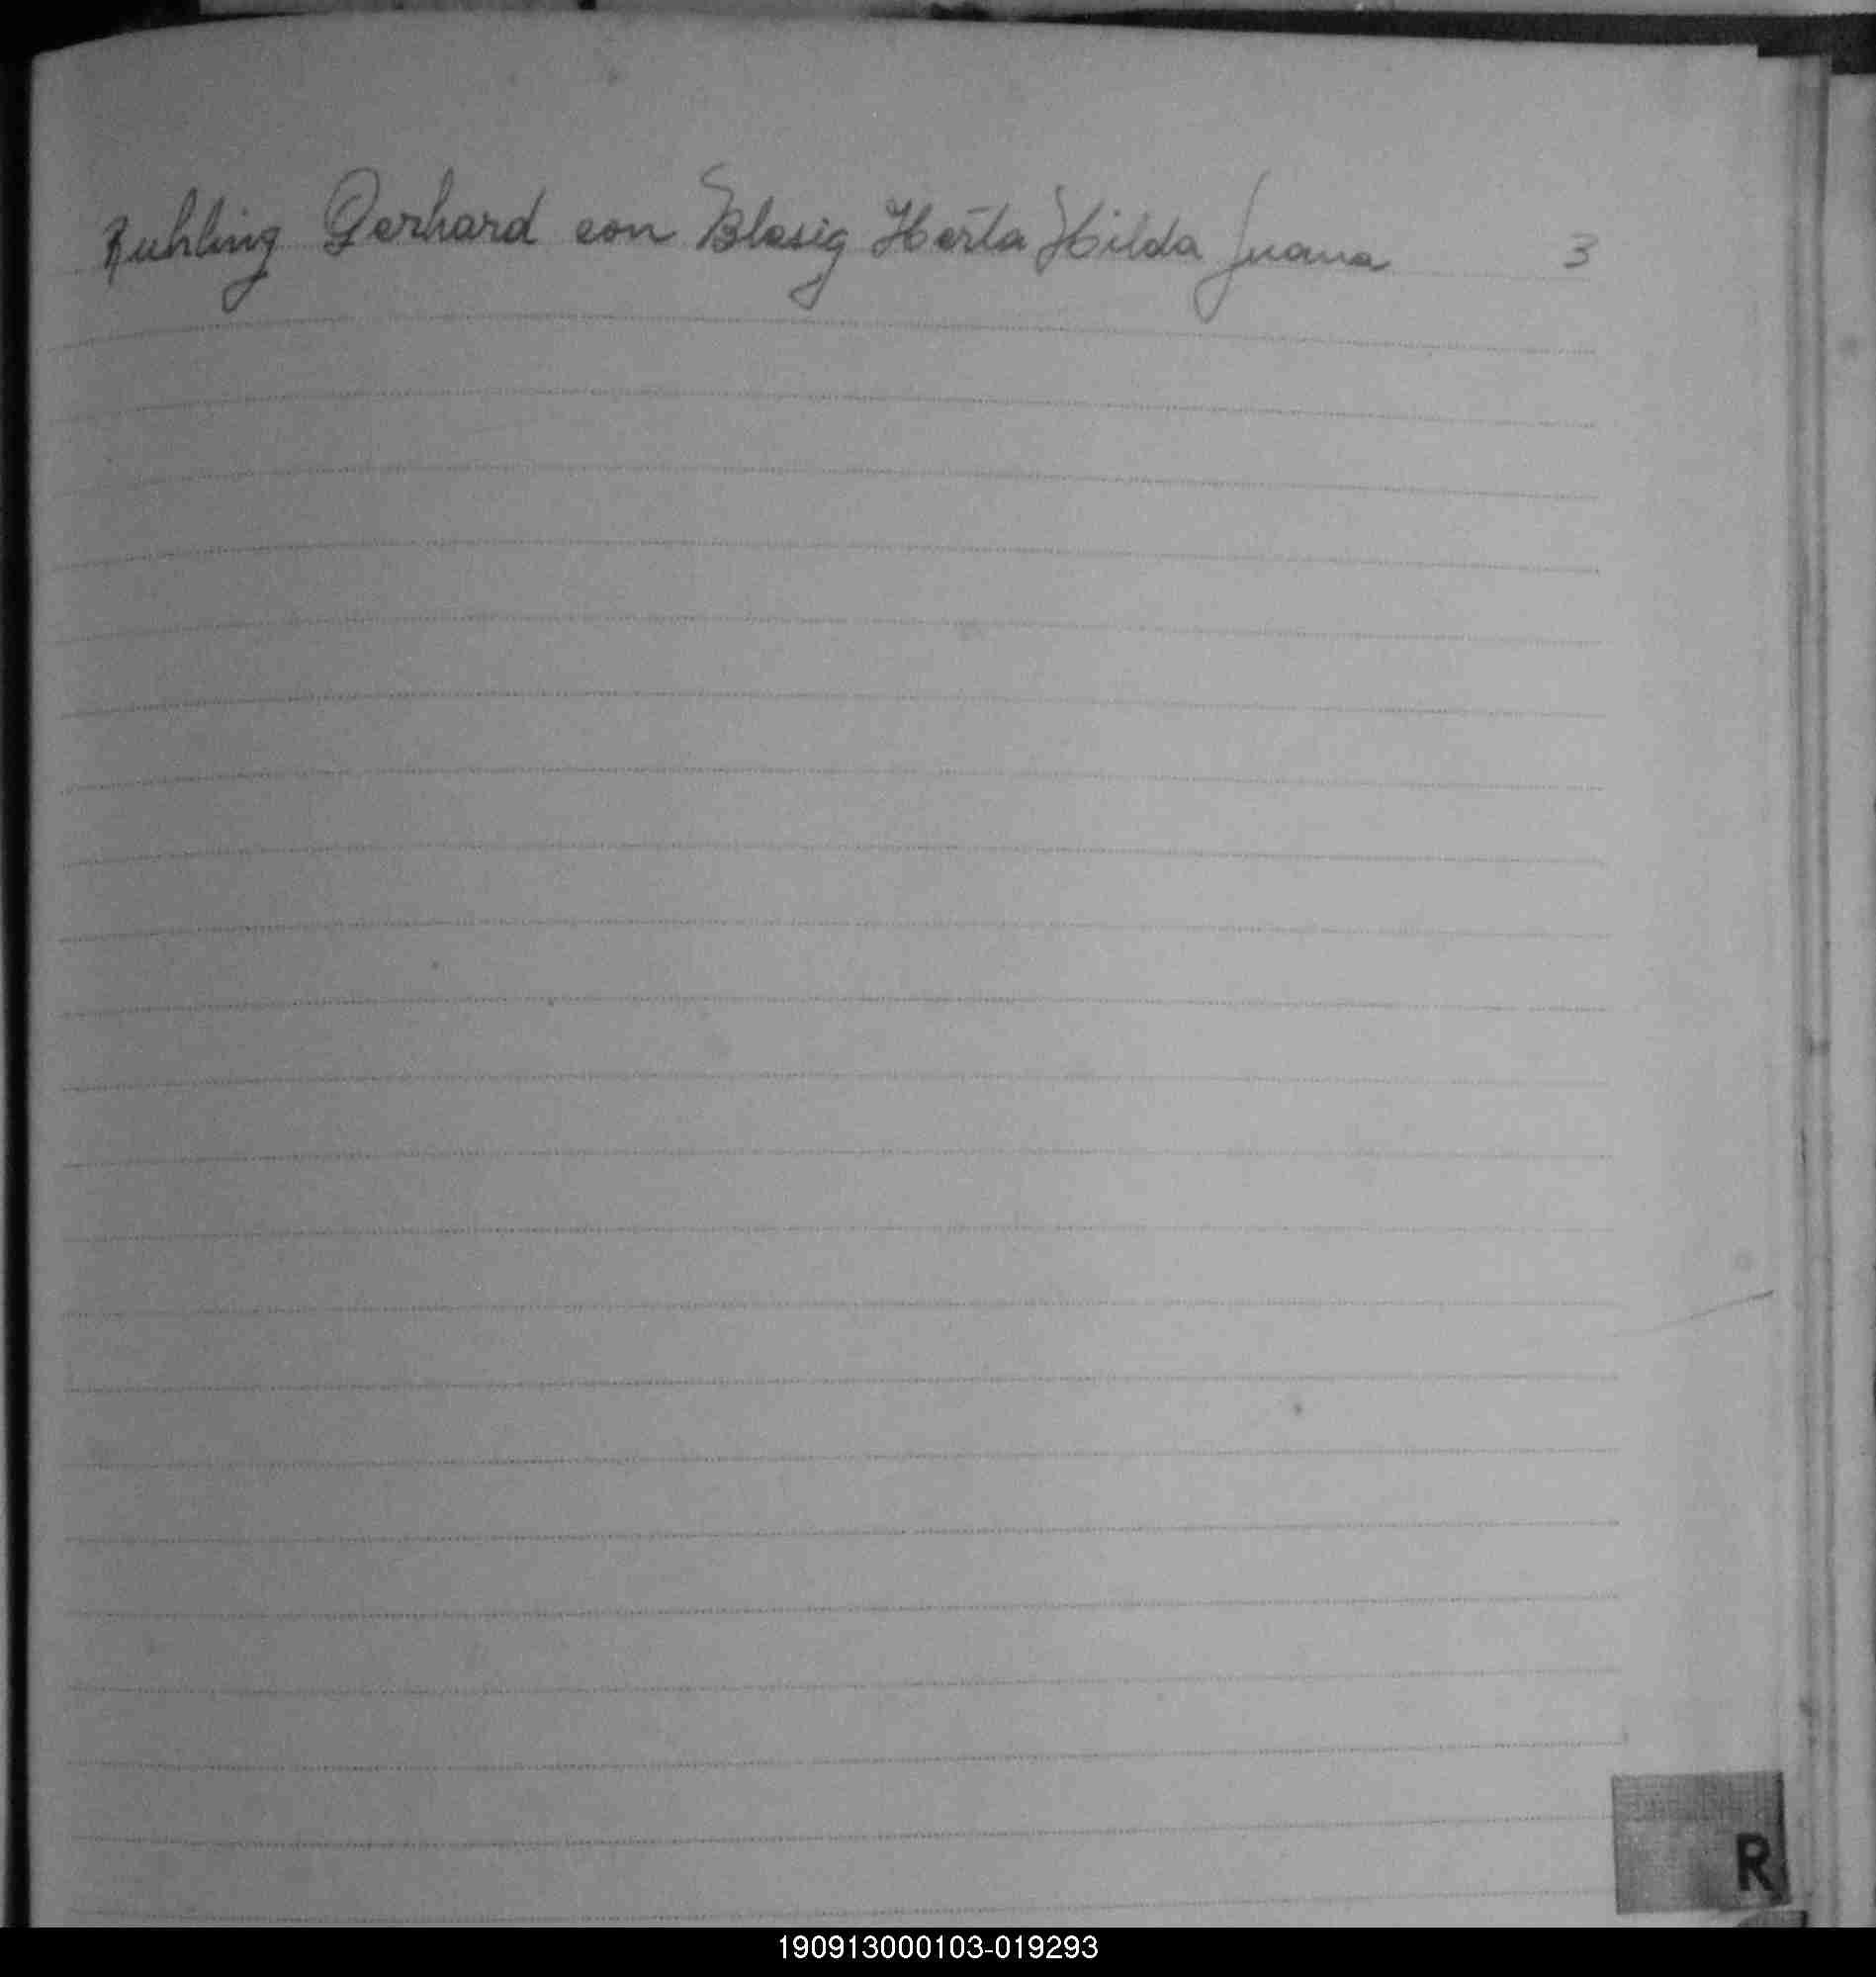 Ruhling Gerhard con Blasig Herta Hilda Juana 3
R
190913000103-019293